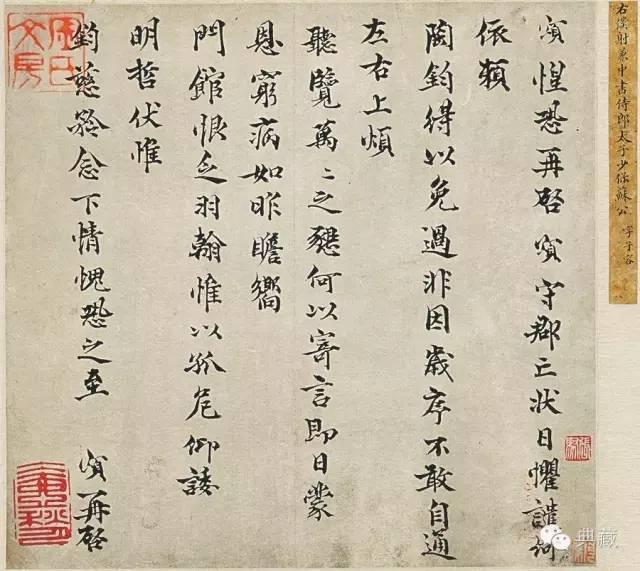 右僕射兼中書侍郎太子少保蘇公 字子容
惶恐再啓 守郡亡狀日懼譴何
依賴
陶鈞得以免過非因歲序不敢自通
左右上煩
聽覽萬〻之懇何以寄言即日蒙
恩窮病如昨瞻嚮
門館恨乏羽翰惟以孤危仰諉
明哲伏惟
鈞慈矜念下情愧恐之至 再啓
典藏